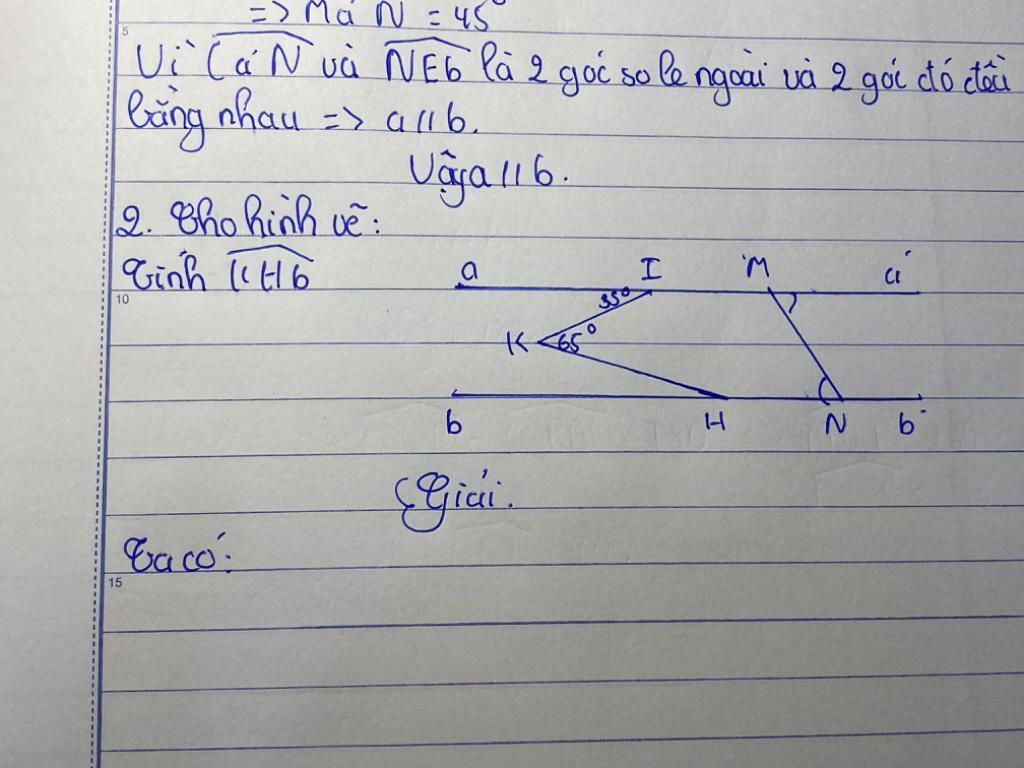 => Ma N = 45°
5
Vì Ca N và NEb là 2 góc so le ngoài và 2 góc đó đều
bằng nhau => a // b.
Vậy a // b.
2. Cho hình vẽ:
Tính KHb
a I M a'
10
35°
K 65°
b H N b'
Giải.
Ta có:
15